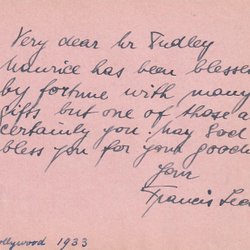 Very dear Mr Dudley
Maurice has been blessed
by fortune with many
gifts but one of those a
certainly you. May God
bless you for your goodn
Your
Francis Led
ollywood 1933